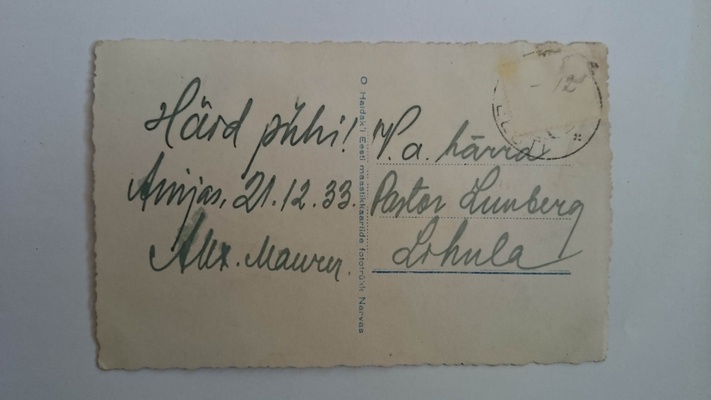 Häid pühi!
Amjas, 21.12.33.
Alex. Maurer.
O Haidak'i Eesti maastikkaartide fototrükk Narvas
V. a. härra
Pastor Lunberg
Lohula
- 12